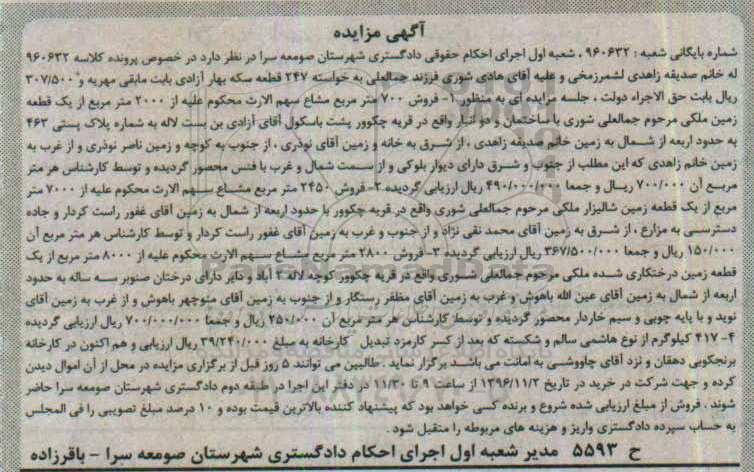 آگهی مزایده
شماره بایگانی شعبه : ۹۶۰۶۳۲ ، شعبه اول اجرای احکام حقوقی دادگستری شهرستان صومعه سرا در نظر دارد در خصوص پرونده کلاسه ۹۶۰۶۳۲
له خانم صدیقه زاهدی لشمرزمخی و علیه آقای هادی شوری فرزند جمالعلی به خواسته ۲۴۷ قطعه سکه بهار آزادی بابت مابقی مهریه و ۳۰۷/۵۰۰
ریال بابت حق الاجراء دولت ، جلسه مزایده ای به منظور ۱- فروش ۷۰۰ متر مربع مشاع سهم الارث محکوم علیه از ۲۰۰۰ متر مربع از یک قطعه
زمین ملکی مرحوم جمالعلی شوری با ساختمان و دو انبار واقع در قریه چکوور پشت باسکول آقای آزادی بن بست لاله به شماره پلاک پستی ۴۶۳
به حدود اربعه از شمال به زمین خانم صدیقه زاهدی ، از شرق به خانه و زمین آقای نوذری ، از جنوب به کوچه و زمین ناصر نوذری و از غرب به
زمین خانم زاهدی که این مطلب از جنوب و شرق دارای دیوار بلوکی و از سمت شمال و غرب با فنس محصور گردیده و توسط کارشناس هر متر
مربع آن ۷۰۰/۰۰۰ ریال و جمعا ۴۹۰/۰۰۰/۰۰۰ ریال ارزیابی گردیده ۲- فروش ۲۴۵۰ متر مربع مشاع سهم الارث محکوم علیه از ۷۰۰۰ متر
مربع از یک قطعه زمین شالیزار ملکی مرحوم جمالعلی شوری واقع در قریه چکوور با حدود اربعه از شمال به زمین آقای غفور راست کردار و جاده
دسترسی به مزارع ، از شرق به زمین آقای محمد نقی نژاد و از جنوب و غرب به زمین آقای غفور راست کردار و توسط کارشناس هر متر مربع آن
۱۵۰/۰۰۰ ریال و جمعا ۳۶۷/۵۰۰/۰۰۰ ریال ارزیابی گردیده ۳- فروش ۲۸۰۰ متر مربع مشاع سهم الارث محکوم علیه از ۸۰۰۰ متر مربع از یک
قطعه زمین درختکاری شده ملکی مرحوم جمالعلی شوری واقع در قریه چکوور کوچه لاله ۳ آباد و دایر دارای درختان صنوبر سه ساله به حدود
اربعه از شمال به زمین آقای عین الله باهوش و غرب به زمین آقای مظفر رستگار و از جنوب به زمین آقای منوچهر باهوش و از غرب به زمین آقای
نوید و با پایه چوبی و سیم خاردار محصور گردیده و توسط کارشناس هر متر مربع آن ۲۵۰/۰۰۰ ریال و جمعا ۷۰۰/۰۰۰/۰۰۰ ریال ارزیابی گردیده
۴- ۴۱۷ کیلوگرم از نوع هاشمی سالم و شکسته که بعد از کسر کارمزد تبدیل کارخانه به مبلغ ۳۹/۲۴۰/۰۰۰ ریال ارزیابی و هم اکنون در کارخانه
برنجکوبی دهقان و نزد آقای چاووشی به امانت می باشد برگزار نماید . طالبین می توانند ۵ روز قبل از برگزاری مزایده در محل از آن اموال دیدن
کرده و جهت شرکت در خرید در تاریخ ۱۳۹۶/۱۱/۲ از ساعت ۹ تا ۱۱/۳۰ در دفتر این اجرا در طبقه دوم دادگستری شهرستان صومعه سرا حاضر
شوند . فروش از مبلغ ارزیابی شده شروع و برنده کسی خواهد بود که پیشنهاد کننده بالاترین قیمت بوده و ۱۰ درصد مبلغ تصویبی را فی المجلس
به حساب سپرده دادگستری واریز و هزینه های مربوطه را متقبل شود .
ح ۵۵۹۳ مدیر شعبه اول اجرای احکام دادگستری شهرستان صومعه سرا - باقرزاده